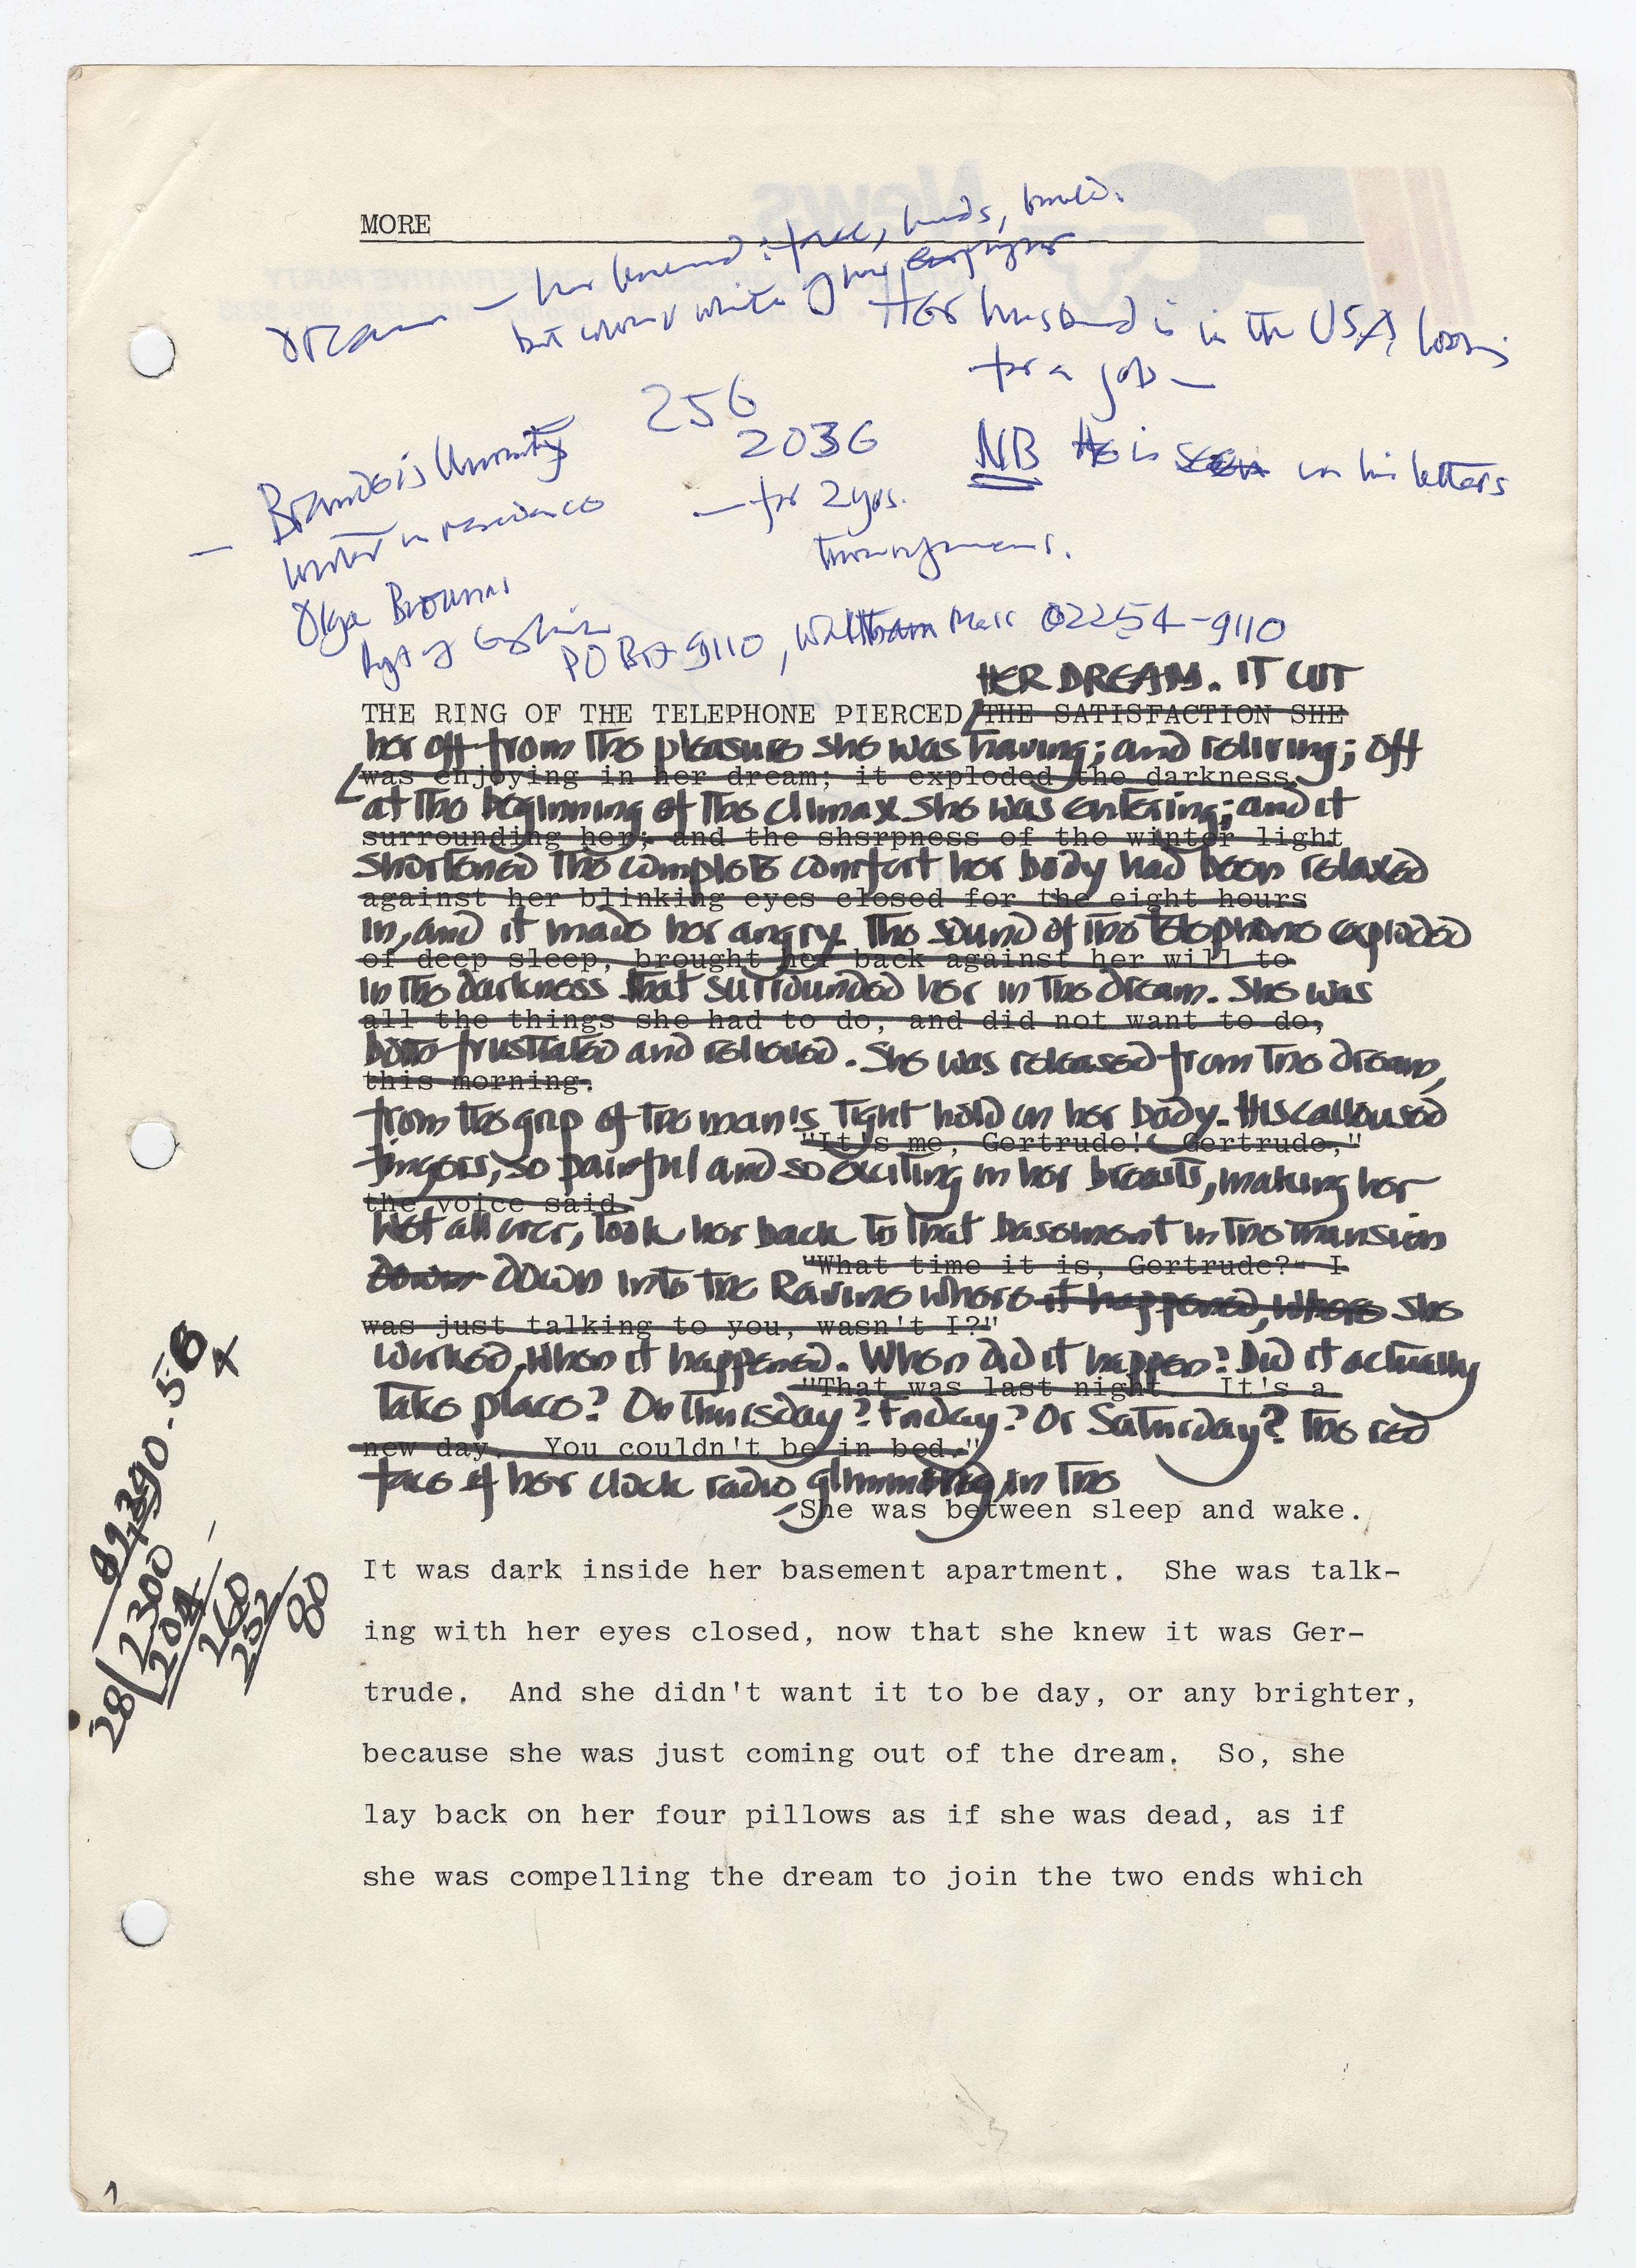 MORE
Dream — her husband: face, hands, build.
but colour white of her employer
Her husband is in the USA, looking
for a job —
256
2036
NB He is seen in his letters
Brandeis University
— for 2 yrs.
— writer in residence
Olga Broumas
PO Box 9110, Waltham Mass 02254-9110
HER DREAM. IT CUT
THE RING OF THE TELEPHONE PIERCED THE SATISFACTION SHE
her off from the pleasure she was having; and reliving; off
was enjoying in her dream; it exploded the darkness
at the beginning of the climax she was entering; and it
surrounding her; and the shsrpness of the winter light
shortened the complete comfort her body had been relaxed
against her blinking eyes closed for the eight hours
in, and it made her angry. The sound of the telephone exploded
of deep sleep, brought her back against her will to
in the darkness that surrounded her in the dream. She was
all the things she had to do, and did not want to do,
both frustrated and relieved. She was released from the dream,
this morning.
from the grip of the man's tight hold on her body. His calloused
"It's me, Gertrude! Gertrude,"
fingers, so painful and so exciting in her breasts, making her
the voice said.
wet all over, took her back to that basement in the mansion
"What time it is, Gertrude?- I
down down into the Ravine where it happened, where she
was just talking to you, wasn't I?"
worked, when it happened. When did it happen? Did it actually
"That was last night. It's a
take place? On Thursday? Friday? Or Saturday? The red
new day. You couldn't be in bed."
face of her clock radio glimmering in the
She was between sleep and wake.
It was dark inside her basement apartment. She was talk-
ing with her eyes closed, now that she knew it was Ger-
trude. And she didn't want it to be day, or any brighter,
because she was just coming out of the dream. So, she
lay back on her four pillows as if she was dead, as if
she was compelling the dream to join the two ends which
28 2300
160
252
80
1